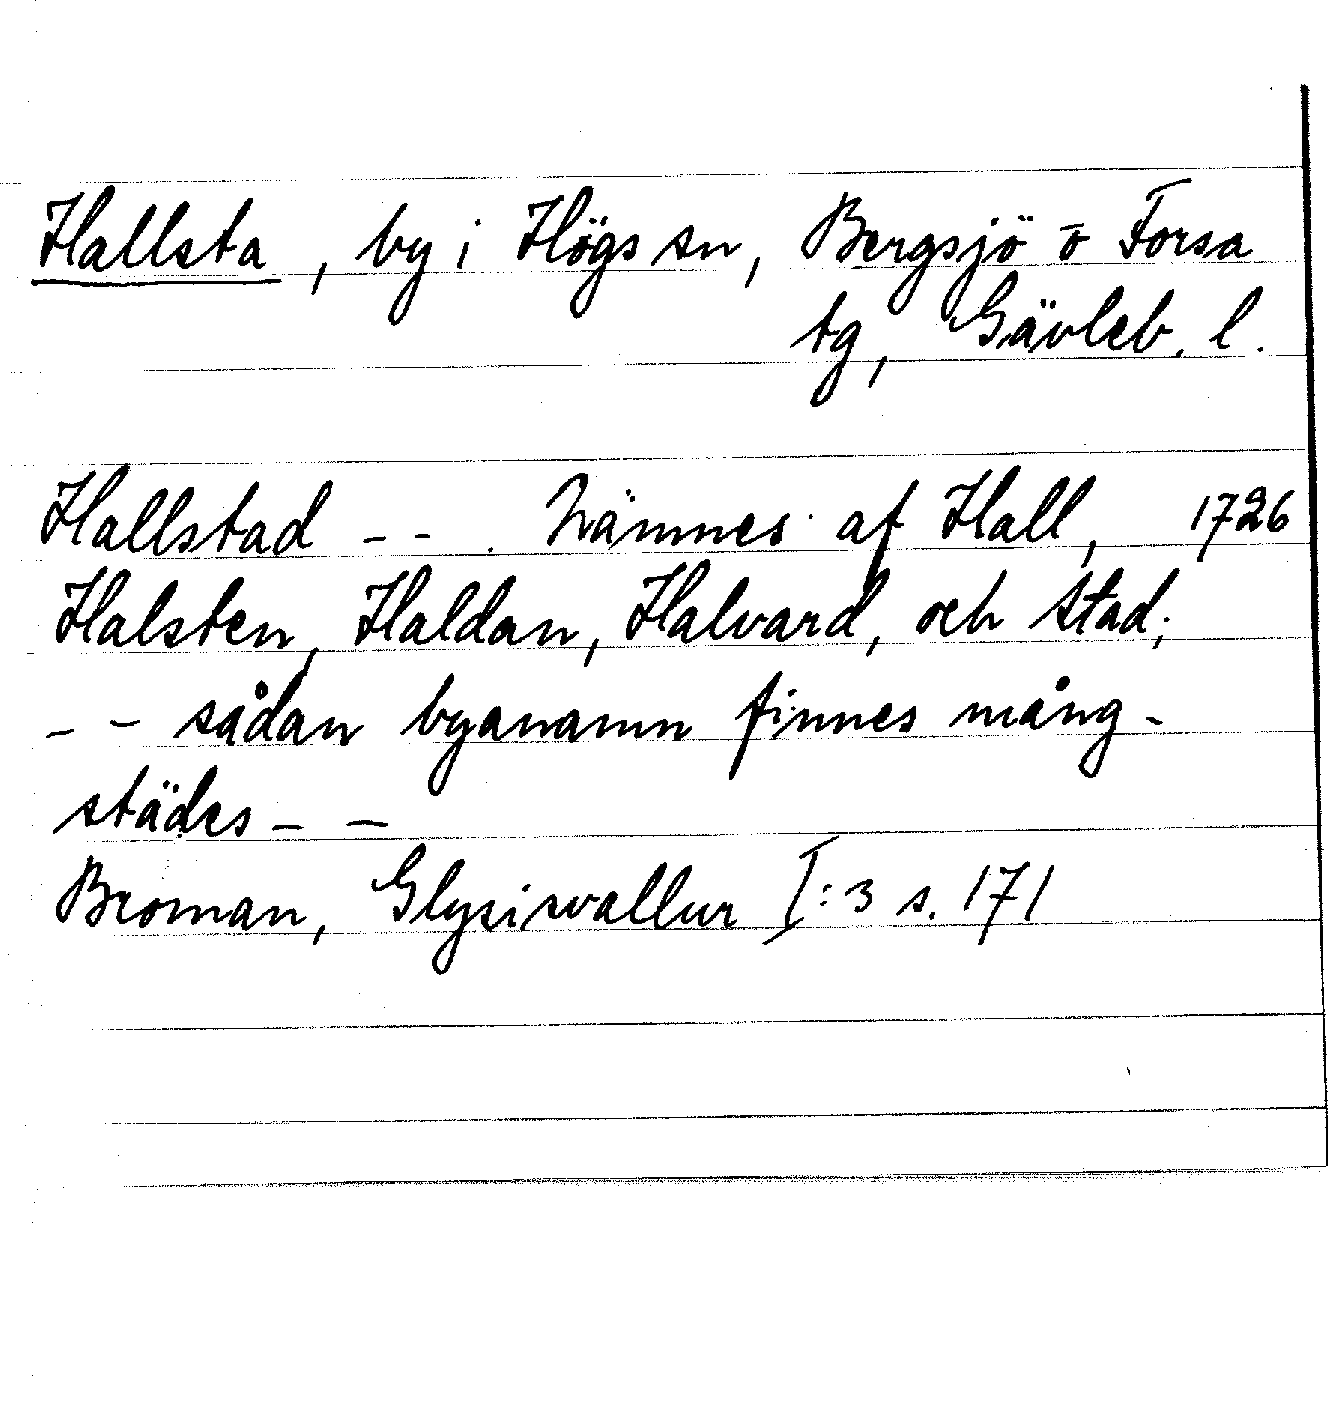 Hallsta, by i Högs sn, Bergsjö o Forsa
tg, Gävleb. l.
Hallstad - - . Nämnes af Hall, 1726
Halsten, Haldan, Halvard, och stad;
- - sådan byanamn finnes mång-
städes - -
Broman, Glysisvallur I:3 s. 171